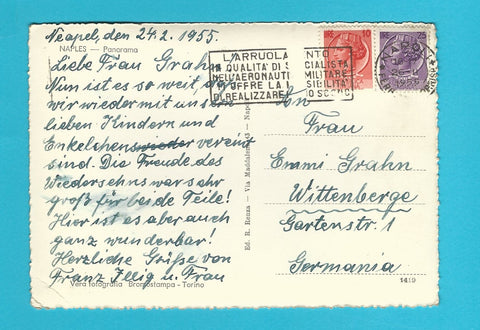 Neapel, den 24.2.1955.
NAPLES — Panorama
Liebe Frau Grahn
Nun ist es so weit, daß
wir wieder mit unseren
lieben Kindern und
Enkelchen wieder vereint
sind. Die Freude des
Wiedersehns war sehr
groß für beide Teile!
Hier ist es aber auch
ganz wunderbar!
Herzliche Grüße von
Franz Illig u. Frau
Vera fotografia Bromostampa - Torino
Ed. R. Renza - Via Maddalena
L'ARRUOLA NTO
QUALITA' DI S CIALISTA
NELL'AERONAUTI MILITARE
OFFRE LA SIBILITA'
DI REALIZZARE O SCOPO
10
An
Frau
Emmi Grahn
Wittenberge
Gartenstr. 1
Germania
1419